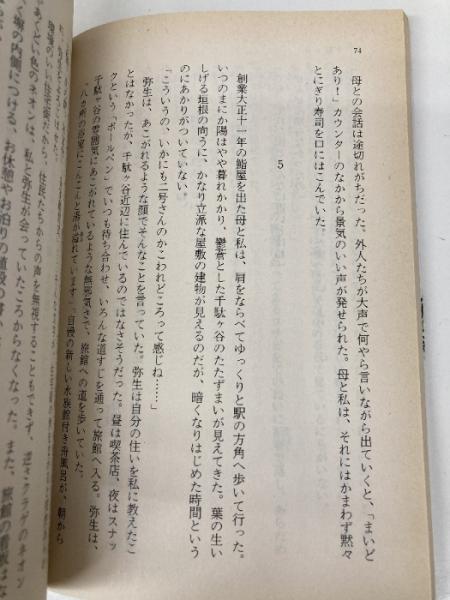 74
母との会話は途切れがちだった。外人たちが大声で何やら言いながら出ていくと、「まいど
あり！」カウンターのなかから景気のいい声が発せられた。母と私は、それにはかまわず黙々
とにぎり寿司を口にはこんでいた。
5
創業大正十一年の鮨屋を出た母と私は、肩をならべてゆっくりと駅の方角へ歩いて行った。
いつのまにか陽はやや暮れかかり、鬱蒼とした千駄ヶ谷のたたずまいが見えてきた。葉の生い
しげる垣根の向うに、かなり立派な屋敷の建物が見えるのだが、暗くなりはじめた時間という
のにあかりがついていない。
「こういうの、いかにも二号さんのかこわれどころって感じね……」
弥生は、あこがれるような顔でそんなことを言っていた。弥生は自分の住いを私に教えたこ
とはなかったが、千駄ヶ谷近辺に住んでいるのではなさそうだった。昼は喫茶店、夜はスナッ
クという「ボールペン」でいつも待ち合わせ、いろんな道すじを通って旅館へ入る。弥生は、
千駄ヶ谷の雰囲気にあこがれているような無邪気さで、旅館への道を歩いていた。
八カ所の浴室にこんこんと湯が溢れています」「自慢の新しい水族館付き舟風呂が、朝から
住民たちからの声を無視することもできず、逆さクラゲのネオン
あくどい色のネオンは、私と弥生が会っていたころからなくなった。また、旅館の看板はな
く塀の内側につける、お休憩やお泊りの値段の書